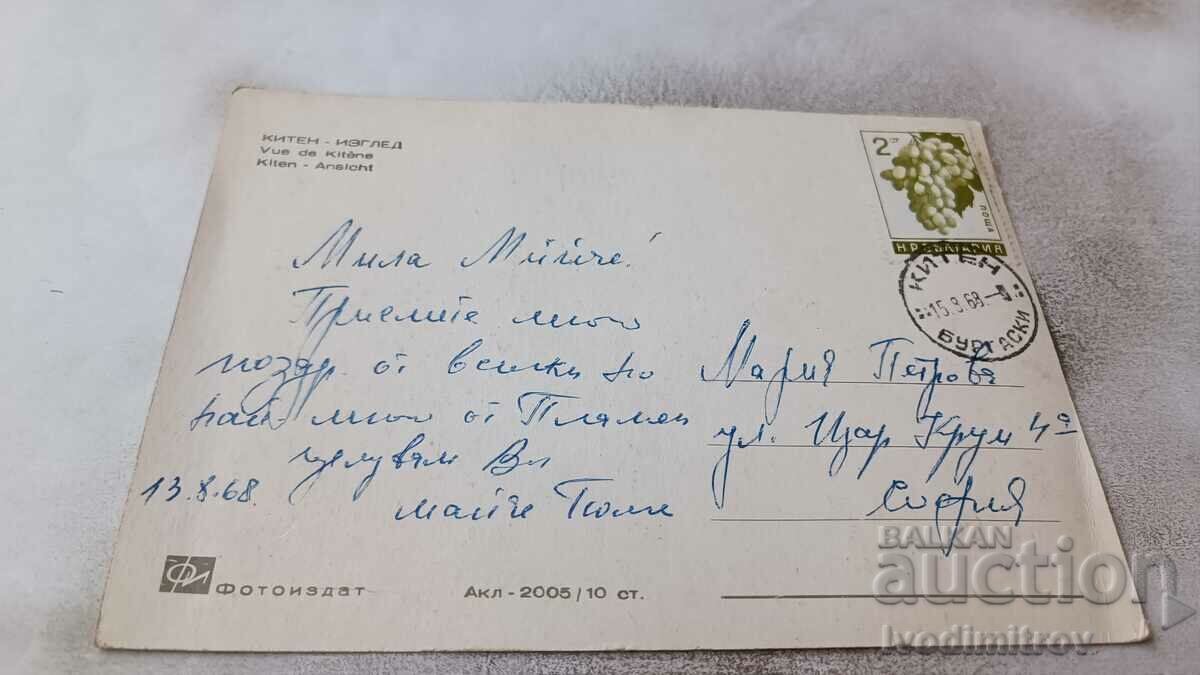 КИТЕН - ИЗГЛЕД
Vue de Kitène
Kiten - Ansicht
2 ст
НР БЪЛГАРИЯ
КИТЕН
15.8.68
БУРГАСКИ
Мила
Приемите много
поздр. от всички но
най много от Пламен
целувам Ви
13.8.68.
майче
Мария Петрова
ул. Цар Крум 4а
София
Фотоиздат
Акл - 2005/10 ст.
BALKAN
auction
ivodimitrov